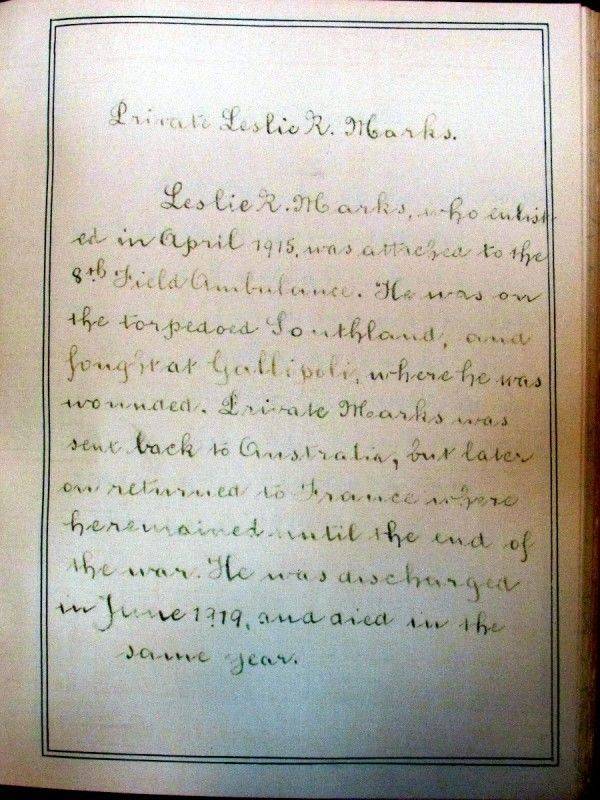 Private Leslie R. Marks.
Leslie R. Marks, who enlist-
ed in April 1915, was attached to the
8th Field Ambulance. He was on
the torpedoed Southland, and
fought at Gallipoli, where he was
wounded. Private Marks was
sent back to Australia, but later
on returned to France where
he remained until the end of
the war. He was discharged
in June 1919, and died in the
same year.